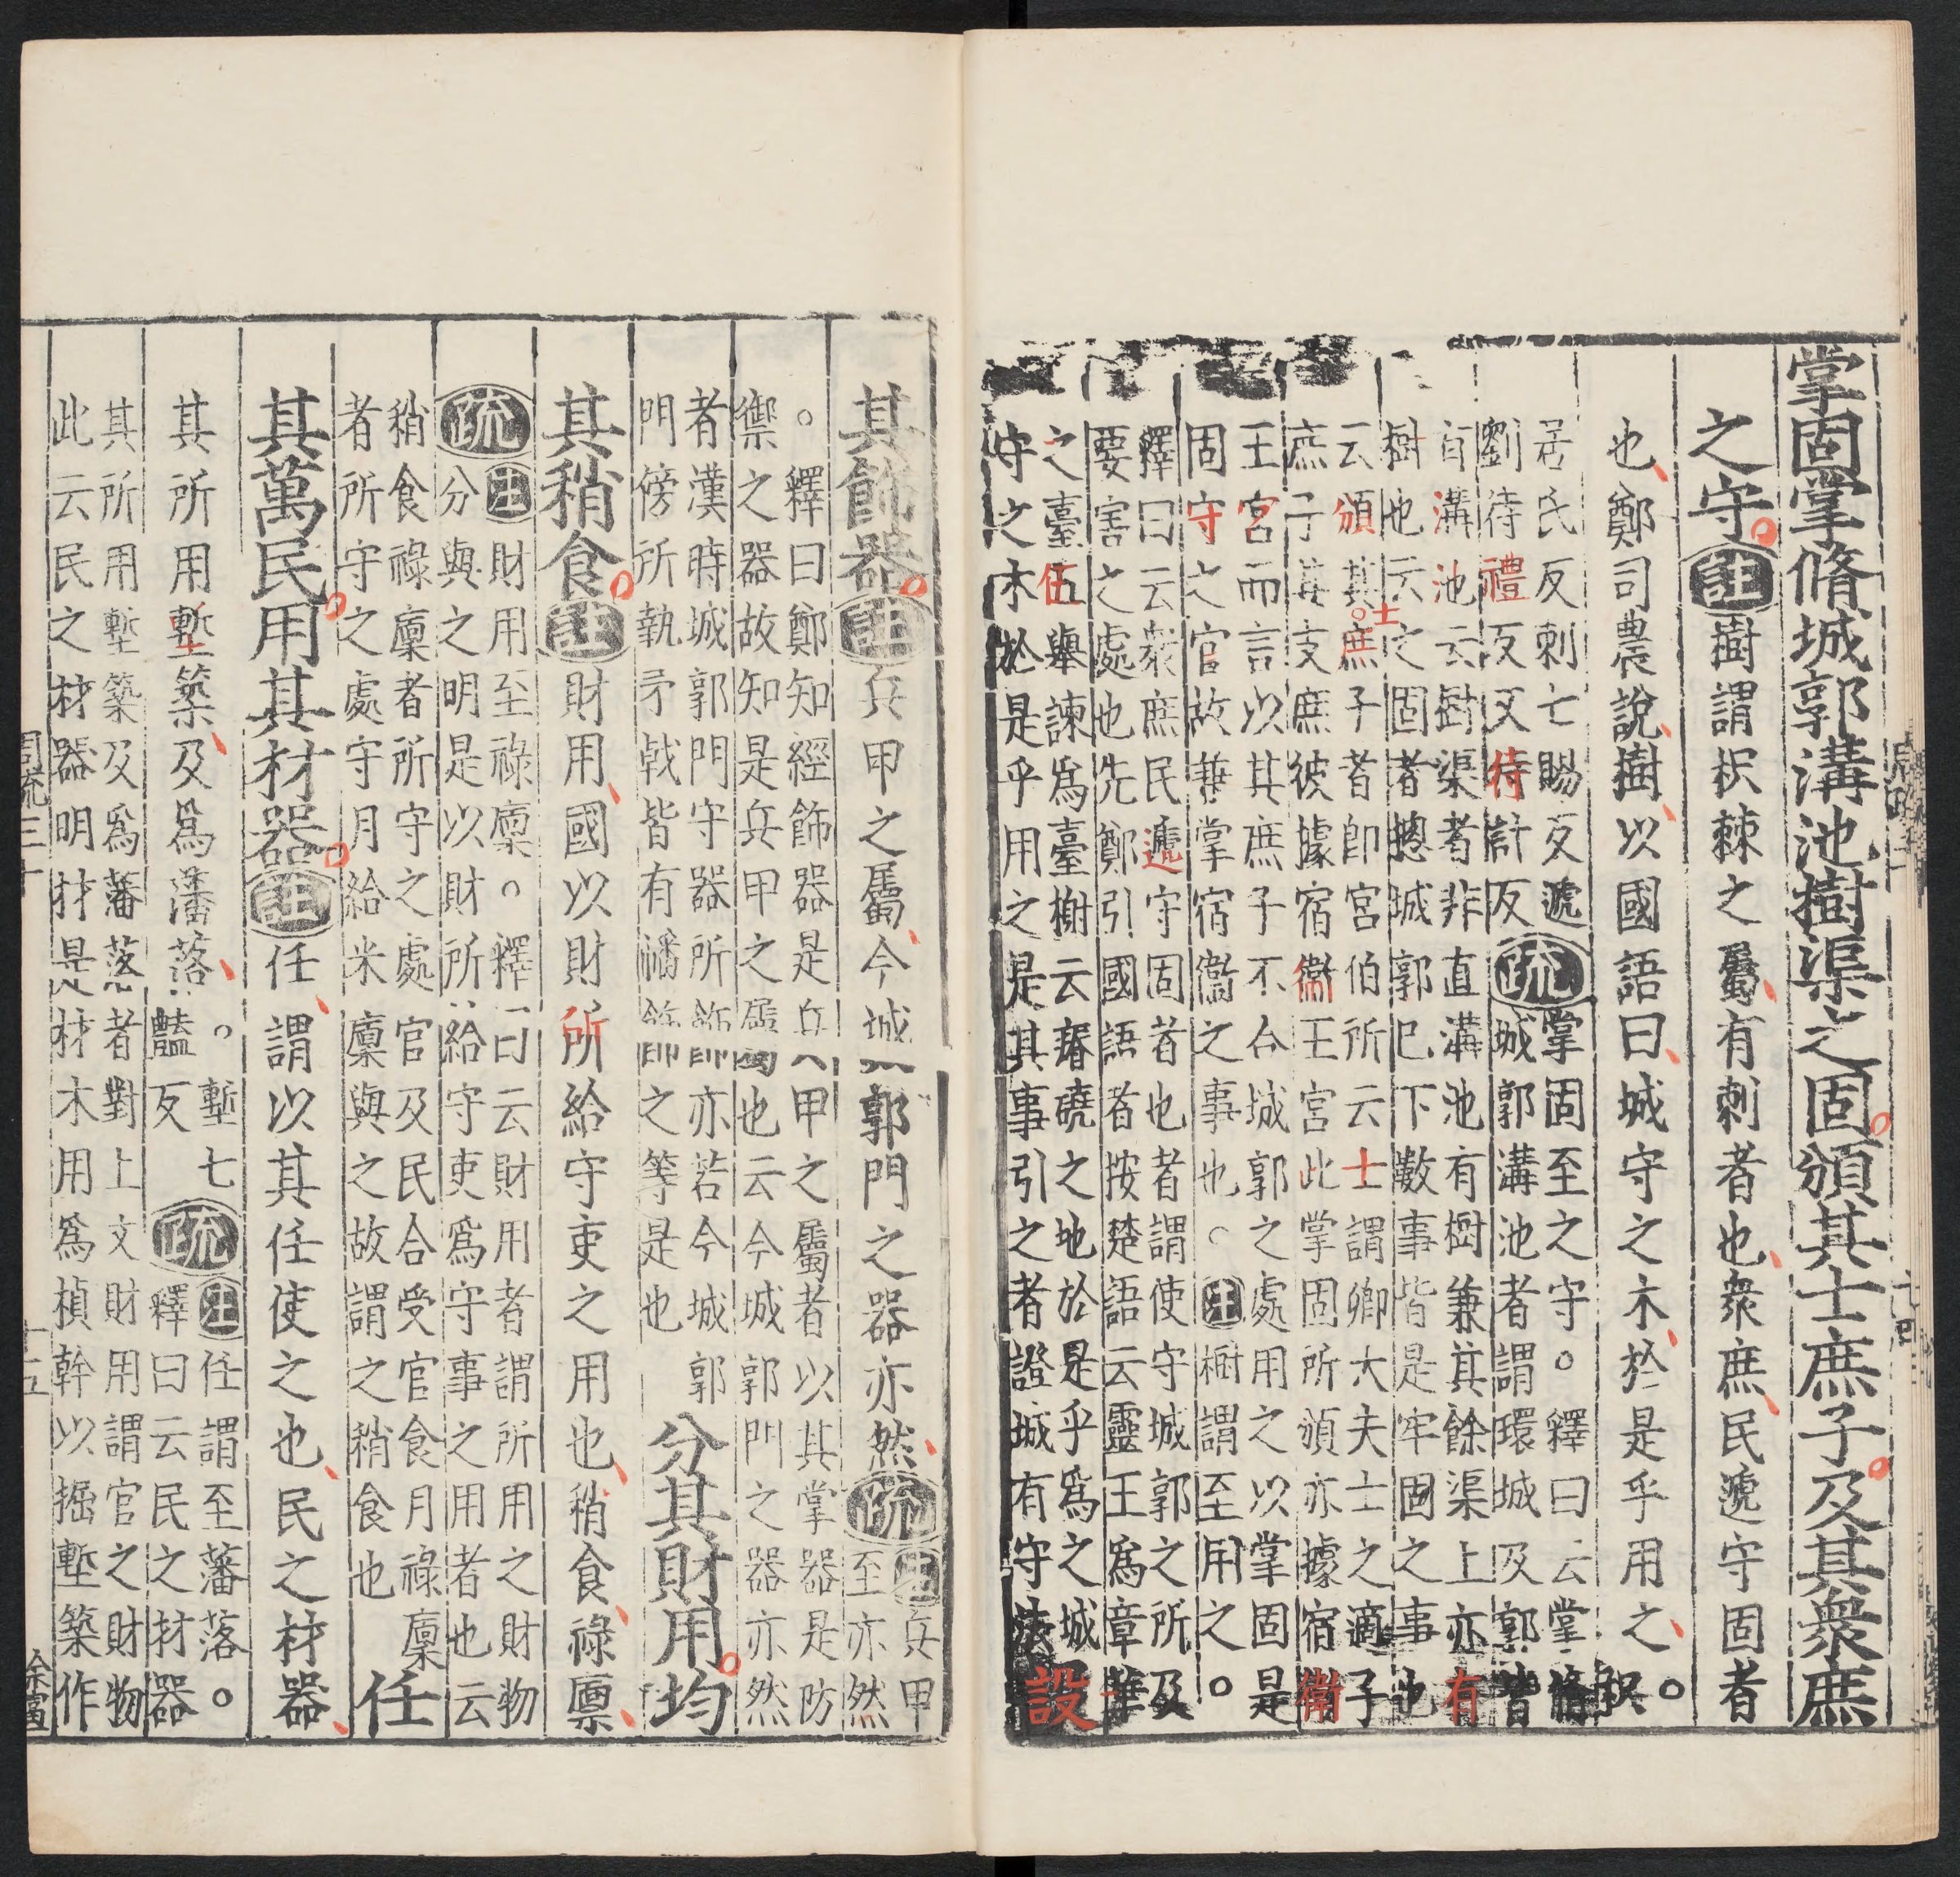 掌固掌脩城郭溝池樹渠之固頒其士庶子及其衆庶
之守註樹謂枳棘之屬有刺者也衆庶民遞守固者
也鄭司農說樹以國語曰城守之木於是乎用之。枳
居氏反刺七賜反遞
劉待禮反又待計反疏掌固至之守。釋曰云掌脩
城郭溝池者謂環城及郭皆
有溝池云樹渠者非直溝池有樹兼其餘渠上亦有
樹也云之固者揔城郭巳下數事皆是牢固之事也
云頒其士庶子者卽宮伯所云士謂卿大夫士之適子
庶子其支庶彼據宿衞王宮此掌固所頒亦據宿衞
王宮而言以其庶子不合城郭之處用之以掌固是
固守之官故兼掌宿衞之事也。注樹謂至用之。
釋曰云衆庶民遞守固者也者謂使守城郭之所及
要害之處也先鄭引國語者按楚語云靈王爲章華
之臺伍舉諫爲臺榭云瘠磽之地於是乎爲之城
守之木於是乎用之是其事引之者證城有守法
設
其飾器註兵甲之屬今城郭門之器亦然疏注兵甲
至亦然
。釋曰鄭知經飾器是兵甲之屬者以其掌器是防
禦之器故知是兵甲之屬也云今城郭門之器亦然
者漢時城郭門守器所飾亦若今城郭
門傍所執矛戟皆有幡飾之等是也分其財用均
其稍食註財用國以財所給守吏之用也稍食祿廩
疏注財用至祿廩。釋曰云財用者謂所用之財物
分與之明是以財所給守吏爲守事之用者也云
稍食祿廩者所守之處官及民合受官食月祿廩
者所守之處守月給米廩與之故謂之稍食也任
其萬民用其材器註任謂以其任使之也民之材器
其所用塹築及爲藩落。塹七
豔反疏注任謂至藩落。
釋曰云民之材器
其所用塹築及爲藩落者對上文財用謂官之財物
此云民之材器明材是材木用爲楨幹以掘塹築作